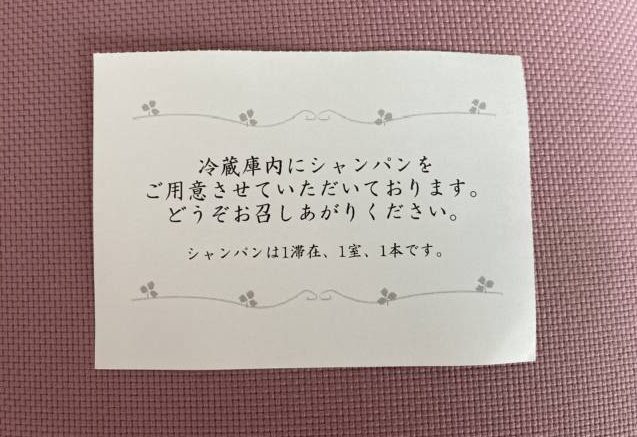 冷蔵庫内にシャンパンを
ご用意させていただいております。
どうぞお召しあがりください。
シャンパンは1滞在、1室、1本です。